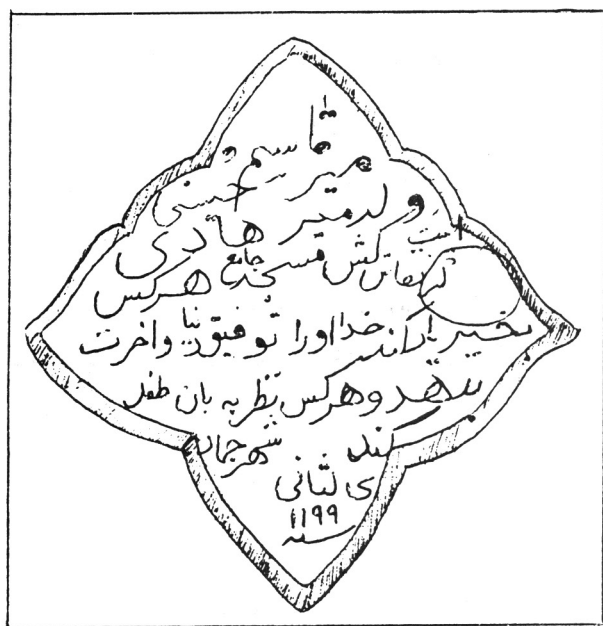 قاسم و
میر حسنی
ولد میر هادی
کش مسجد جامع هرکس
بخیر یاد کند خدا اورا توفیق دنیا و اخرت
بدهد و هرکس نظر به بان طفل
کند شهر جماد
ی لثانی
سنه ۱۱۹۹